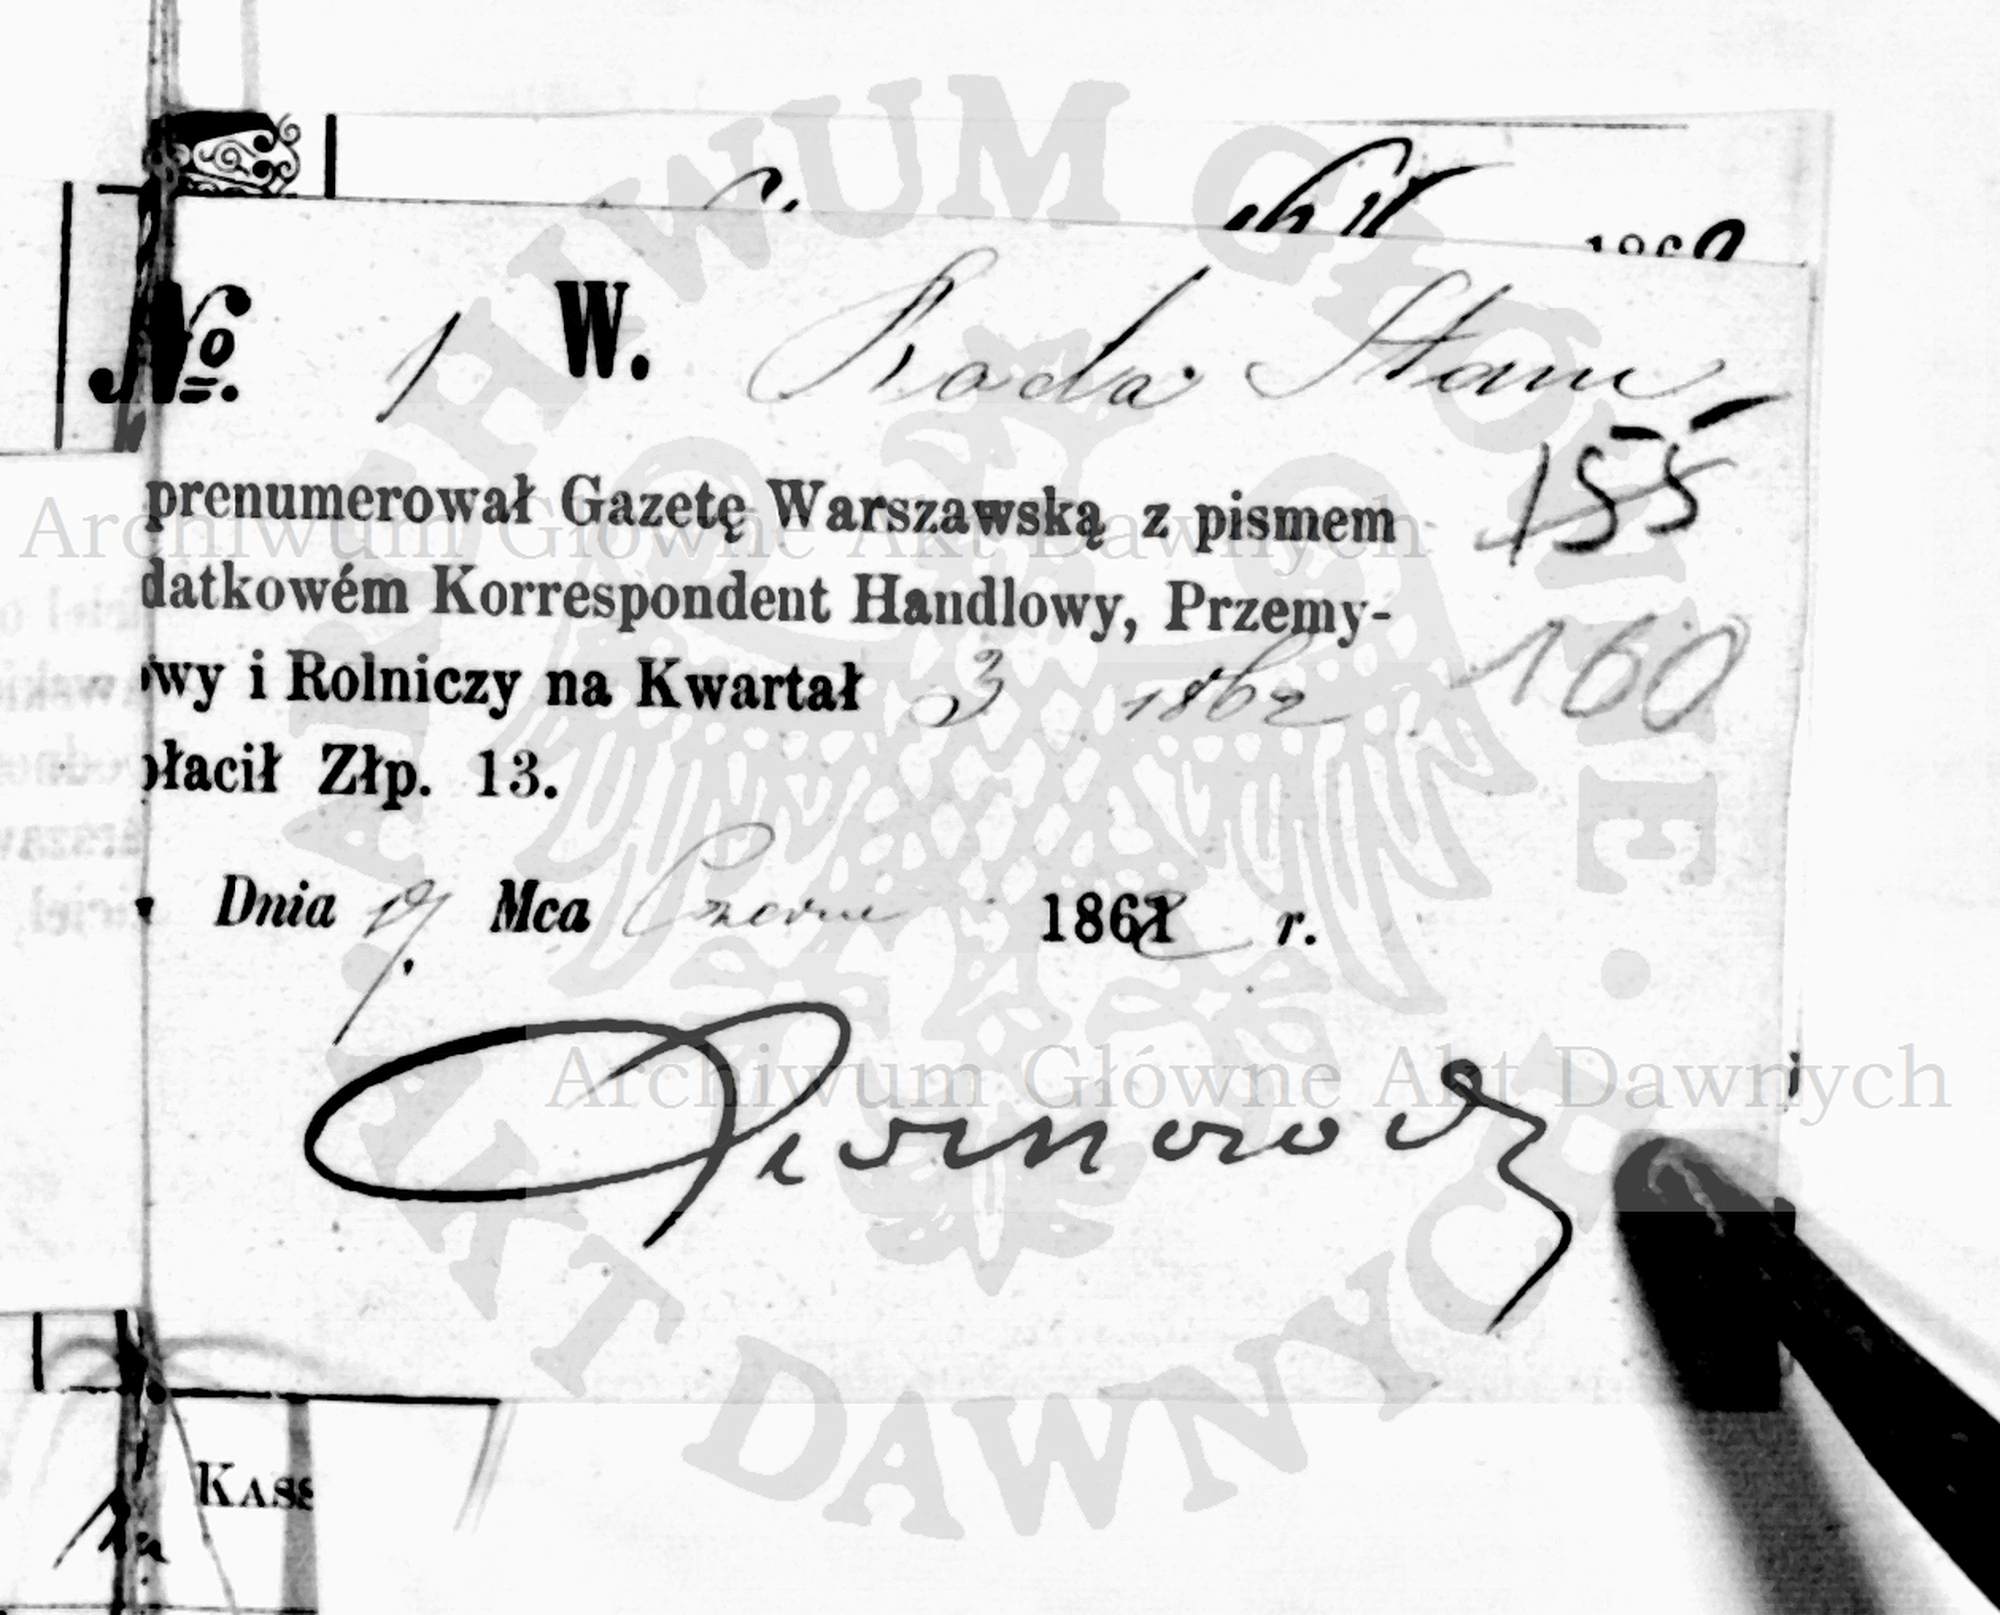 186
№ 1 W. Rada Stanu
155
prenumerował Gazetę Warszawską z pismem
datkowém Korrespondent Handlowy, Przemy-
160
owy i Rolniczy na Kwartał 3 1862
płacił Złp. 13.
Dnia 19 Mca Czerw 1862 r.
KASS
Archiwum Główne Akt Dawnych
Archiwum Główne Akt Dawnych
ARCHIWUM GŁÓWNE AKT DAWNYCH